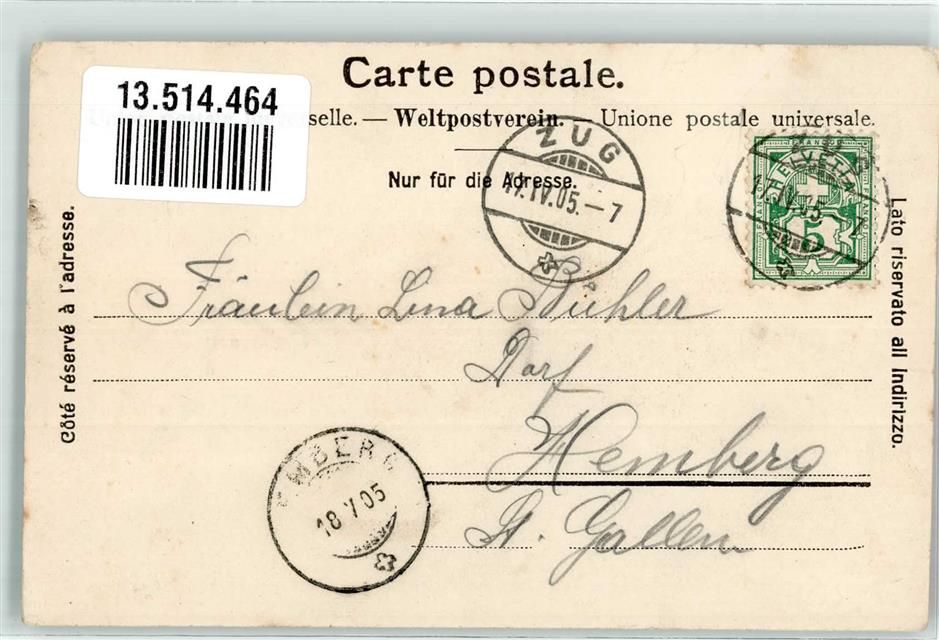 Carte postale.
13.514.464
selle. — Weltpostverein. — Unione postale universale.
Nur für die Adresse.
ZUG
17.IV.05.—7
HELVETIA
5
Côté réservé à l'adresse.
Lato riservato all Indirizzo.
Fräulein Lina Bühler
Dorf
Hemberg
St. Gallen
EMBERG
18 V 05